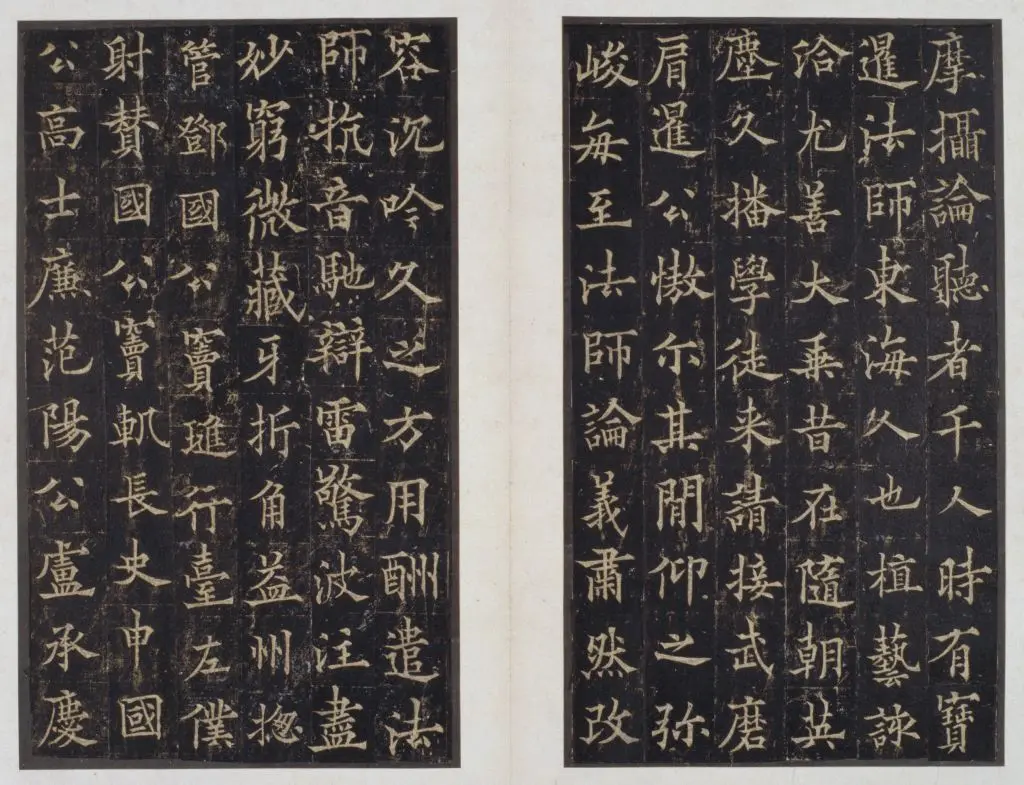 摩攝論聽者千人時有寶
暹法師東海人也植藝該
洽尤善大乗昔在隨朝英
塵久播學徒来請接武磨
肩暹公慠尒其間仰之弥
峻每至法師論義肅然改
容沉吟久之方用酬遣法
師抗音馳辯雷驚波注盡
妙窮微藏牙折角益州揔
管鄧國公竇璡行臺左僕
射賛國公竇軌長史申國
公高士廉范陽公盧承慶